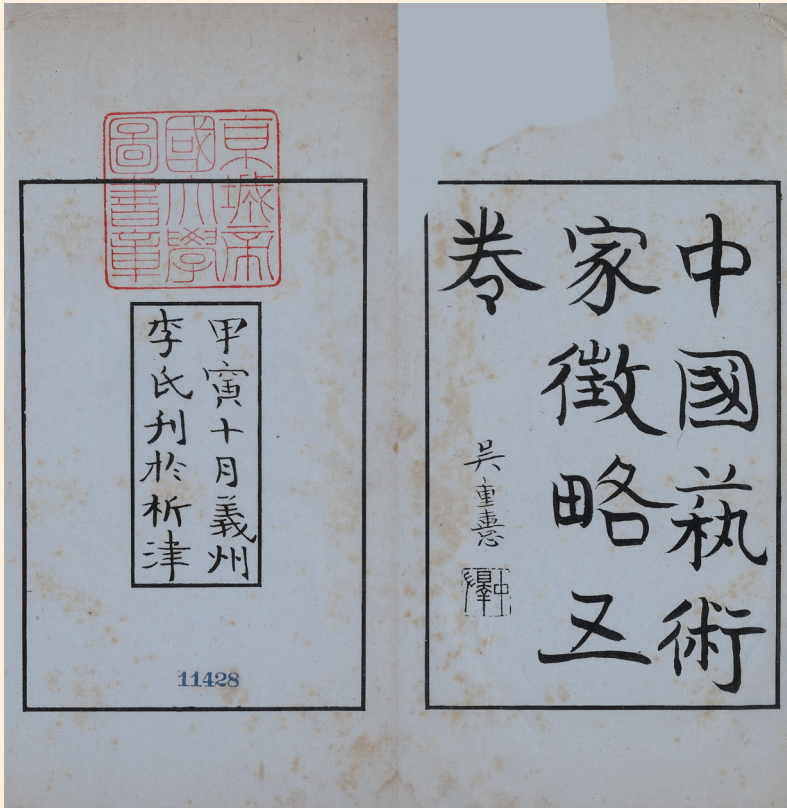 中國蓺術
家徵略五
卷
吳重憙
京城帝
國大學
圖書章
甲寅十月義州
李氏刊於析津
11428